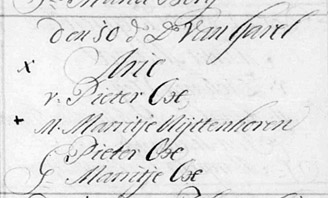 den 30 d D Van Harel
x Arie
v. Pieter Cse
+ M. Marritje Uijttenhoren
G Pieter Cse
G Marritje Cse